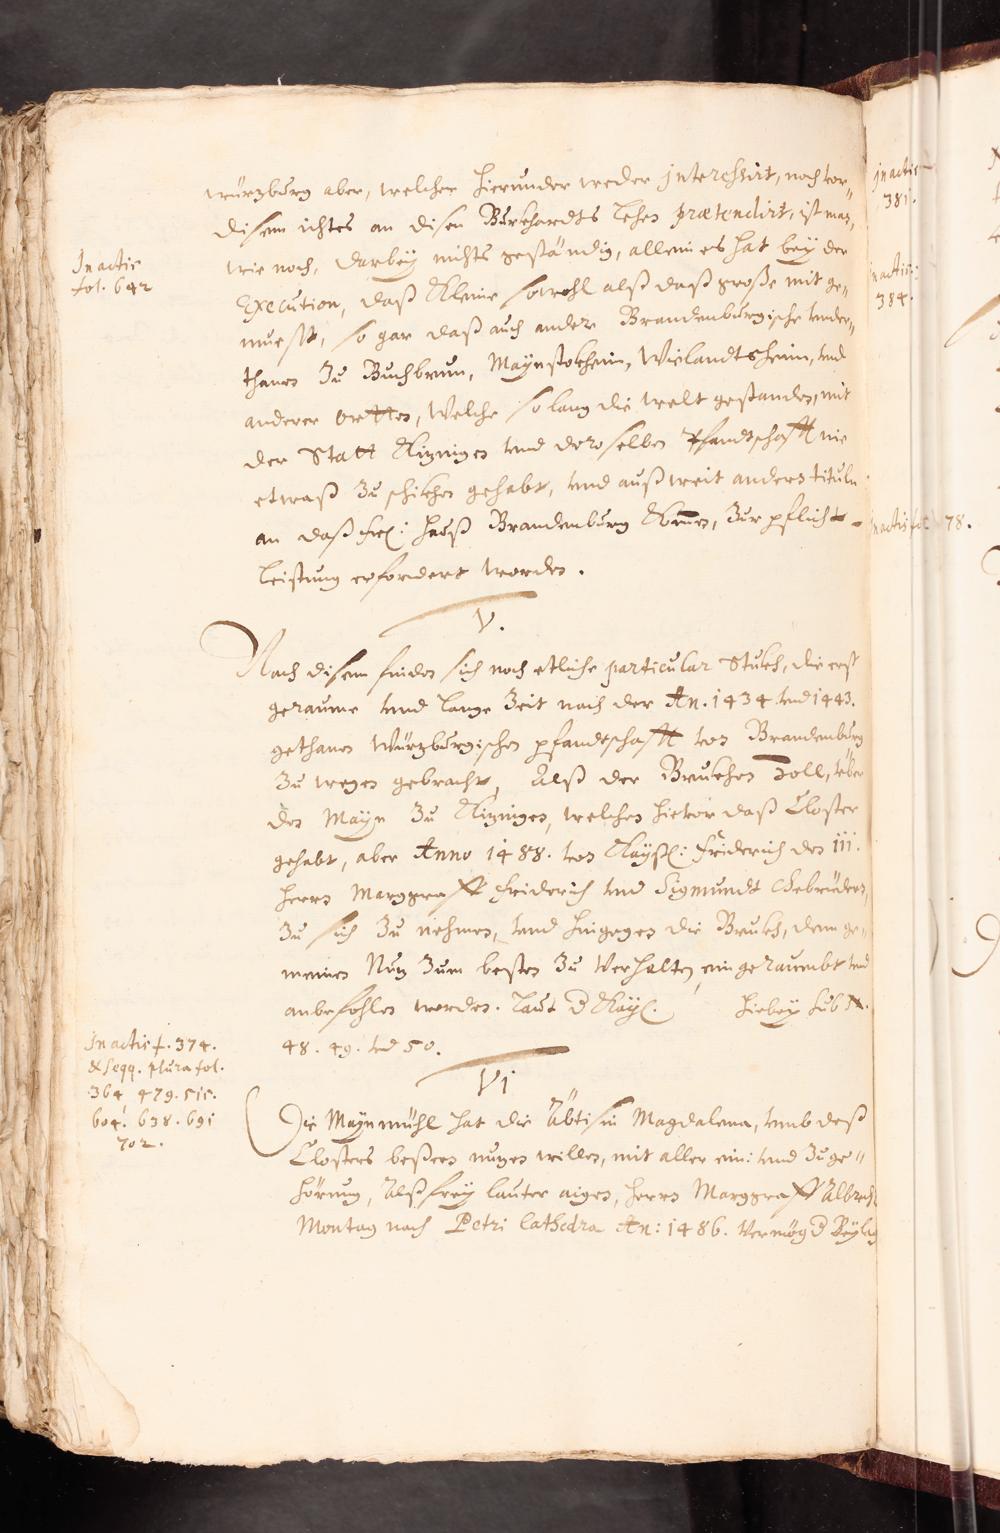 würzburg aber, welcher hierunder weder interessirt, noch vor„
disem ichtes an disen Burkhardts Lehen prætendirt, ist man,
wie noch, darbey nichts geständig, allein es hat bey der
Execution, daß Kleine sowohl alß daß große mit ge„
muest, so gar daß auch andere Brandenburgische vnder„
thanen Zu Buchbrun, Maynstokheim, Wielandtsheim, vnd
anderer Ortten, Welche so lang die welt gestanden, mit
der Statt Kizingen vnd deroselben Pfandtschafft nie
etwaß Zu schikhen gehabt, vnd auß weit anders tituln
an daß frl: Hauß Brandenburg Kommen, Zur pflicht-
leistung erfordert worden.
V.
Nach disem finden sich noch etliche particular Stukh, die erst
geraume vnd lange Zeit nach der An. 1434. vnd 1443.
gethanen Würzburgischen pfandtschafft von Brandenburg
Zu wegen gebracht, Alß der Brukhen Zoll, vber
den Mayn Zu Kizingen, welchen hievor daß Closter
gehabt, aber Anno 1488. von Kayßl: Friderich den III.
herrn Marggraff Friderich vnd Sigmundt Gebrüdern,
Zu sich Zu nehmen, vnd hingegen die Brukh, dem ge„
meinen Nuz Zum besten Zu Verhalten, eingeraumbt vnd
anbefohlen worden. Laut d Kayl. hiebey sub N.
48. 49. vnd 50.
VI
Die Maynmühl hat die Äbtißin Magdalena, vmb deß
Closters beßern nuzen willen, mit aller ein: vnd Zuge„
hörung, Alß frey lauter aigen, herrn Marggraff Albrecht
Montag nach Petri Cathedra An: 1486. Vermög d Beylag
In actis
fol. 642
In actis f. 374.
& seqq. plura fol.
364 479. 515.
604. 638. 691
702.
in actis
381.
in actis:
384.
in actis fol 78.